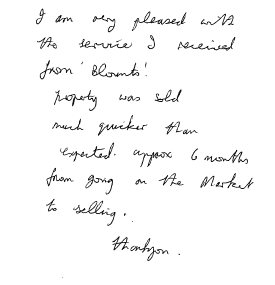 I am very pleased with
the service I received
from 'Blounts'.
Property was sold
much quicker than
expected. approx 6 months
from going on the Market
to selling.
thankyou.